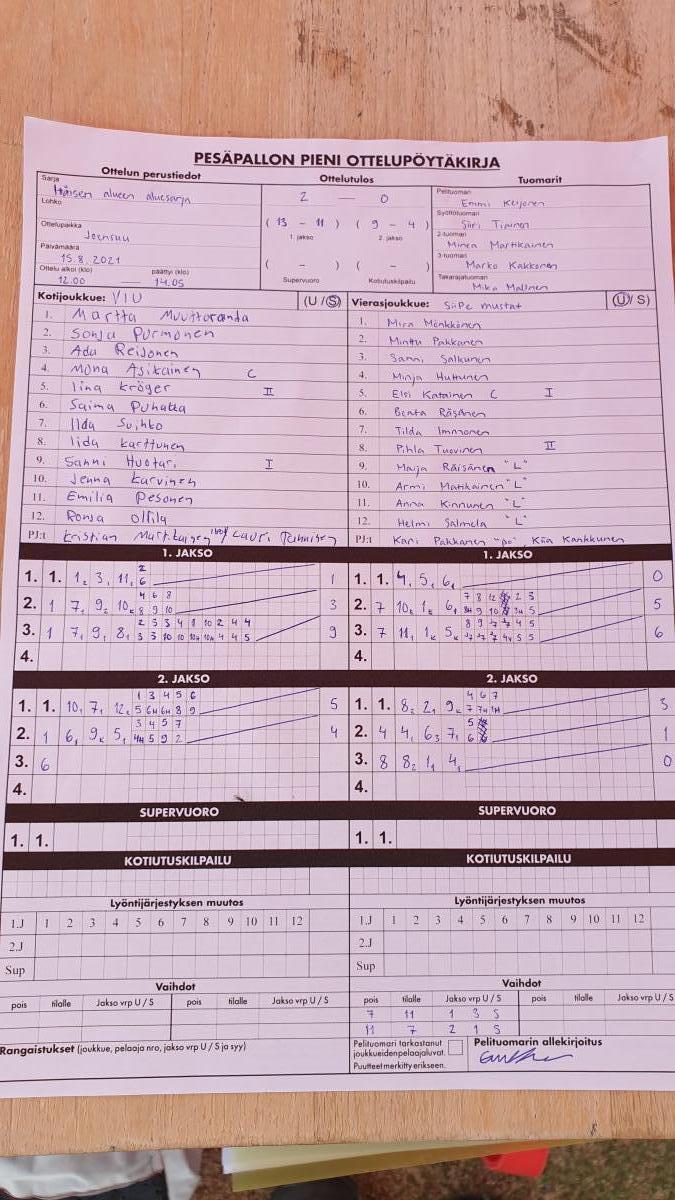 PESÄPALLON PIENI OTTELUPÖYTÄKIRJA
Ottelun perustiedot Ottelutulos Tuomarit
Sarja
Itäisen alueen aluesarja
Lohko
Ottelupaikka
Joensuu
Päivämäärä
15.8.2021
Ottelu alkoi (klo) päättyi (klo)
12.00 — 14.05
2 — 0
( 13 - 11 ) ( 9 - 4 )
1. jakso 2. jakso
( - ) ( - )
Supervuoro Kotiutuskilpailu
Pelituomari
Emmi Keijonen
Syöttötuomari
Siiri Tiainen
2-tuomari
Minea Martikainen
3-tuomari
Marko Kakkonen
Takarajatuomari
Mika Malinen
Kotijoukkue: ViU (U / S)
1. Martta Muuttoranta
2. Sonja Purmonen
3. Ada Reijonen
4. Mona Asikainen C
5. Iina Kröger II
6. Saima Puhakka
7. Ilda Suihko
8. Iida Karttunen
9. Sanni Huotari I
10. Jenna Karvinen
11. Emilia Pesonen
12. Ronja Ollila
PJ:t Kristian Martikainen Lauri
Vierasjoukkue: SiiPe mustat (U / S)
1. Mira Mönkkönen
2. Minttu Pakkanen
3. Sanni Salkunen
4. Minja Huttunen
5. Elsi Katainen C I
6. Beata Räsänen
7. Tilda Immonen
8. Pihla Tuovinen II
9. Maija Räisänen "L"
10. Armi Matikainen "L"
11. Anna Kinnunen "L"
12. Helmi Salmela "L"
PJ:t Kari Pakkanen "po" Kiia Kankkunen
1. JAKSO 1. JAKSO
1. 1. 1₂ 3, 11, 2 6 1
2. 1 7, 9₂ 10ₖ 4 6 8 8 9 10 3
3. 1 7, 9, 8, 2 3 3 4 8 10 2 4 4 9
4.
1. 1. 4, 5, 6, 0
2. 7 10, 1ₖ 6, 5
3. 7 11, 1ₖ 5ₖ 6
4.
2. JAKSO 2. JAKSO
1. 1. 10, 7, 12, 1 3 4 5 6 5 6H 6H 8 9 5
2. 1 6, 9ₖ 5, 3 4 5 7 4H 5 9 2 4
3. 6
4.
1. 1. 8₂ 2, 9ₖ 4 6 7 3
2. 4 4, 6₃ 7, 1
3. 8 8₂ 1, 4, 0
4.
SUPERVUORO SUPERVUORO
1. 1. 1. 1.
KOTIUTUSKILPAILU KOTIUTUSKILPAILU
Lyöntijärjestyksen muutos Lyöntijärjestyksen muutos
1.J 1 2 3 4 5 6 7 8 9 10 11 12 1.J 1 2 3 4 5 6 7 8 9 10 11 12
2.J 2.J
Sup Sup
Vaihdot Vaihdot
pois tilalle Jakso vrp U / S pois tilalle Jakso vrp U / S pois tilalle Jakso vrp U / S pois tilalle Jakso vrp U / S
7 11 1 3 S
11 7 2 1 S
Rangaistukset (joukkue, pelaaja nro, jakso vrp U / S ja syy)
Pelituomari tarkastanut
joukkueidenpelaajaluvat.
Puutteet merkitty erikseen.
Pelituomarin allekirjoitus